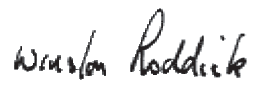 Winston Roddick